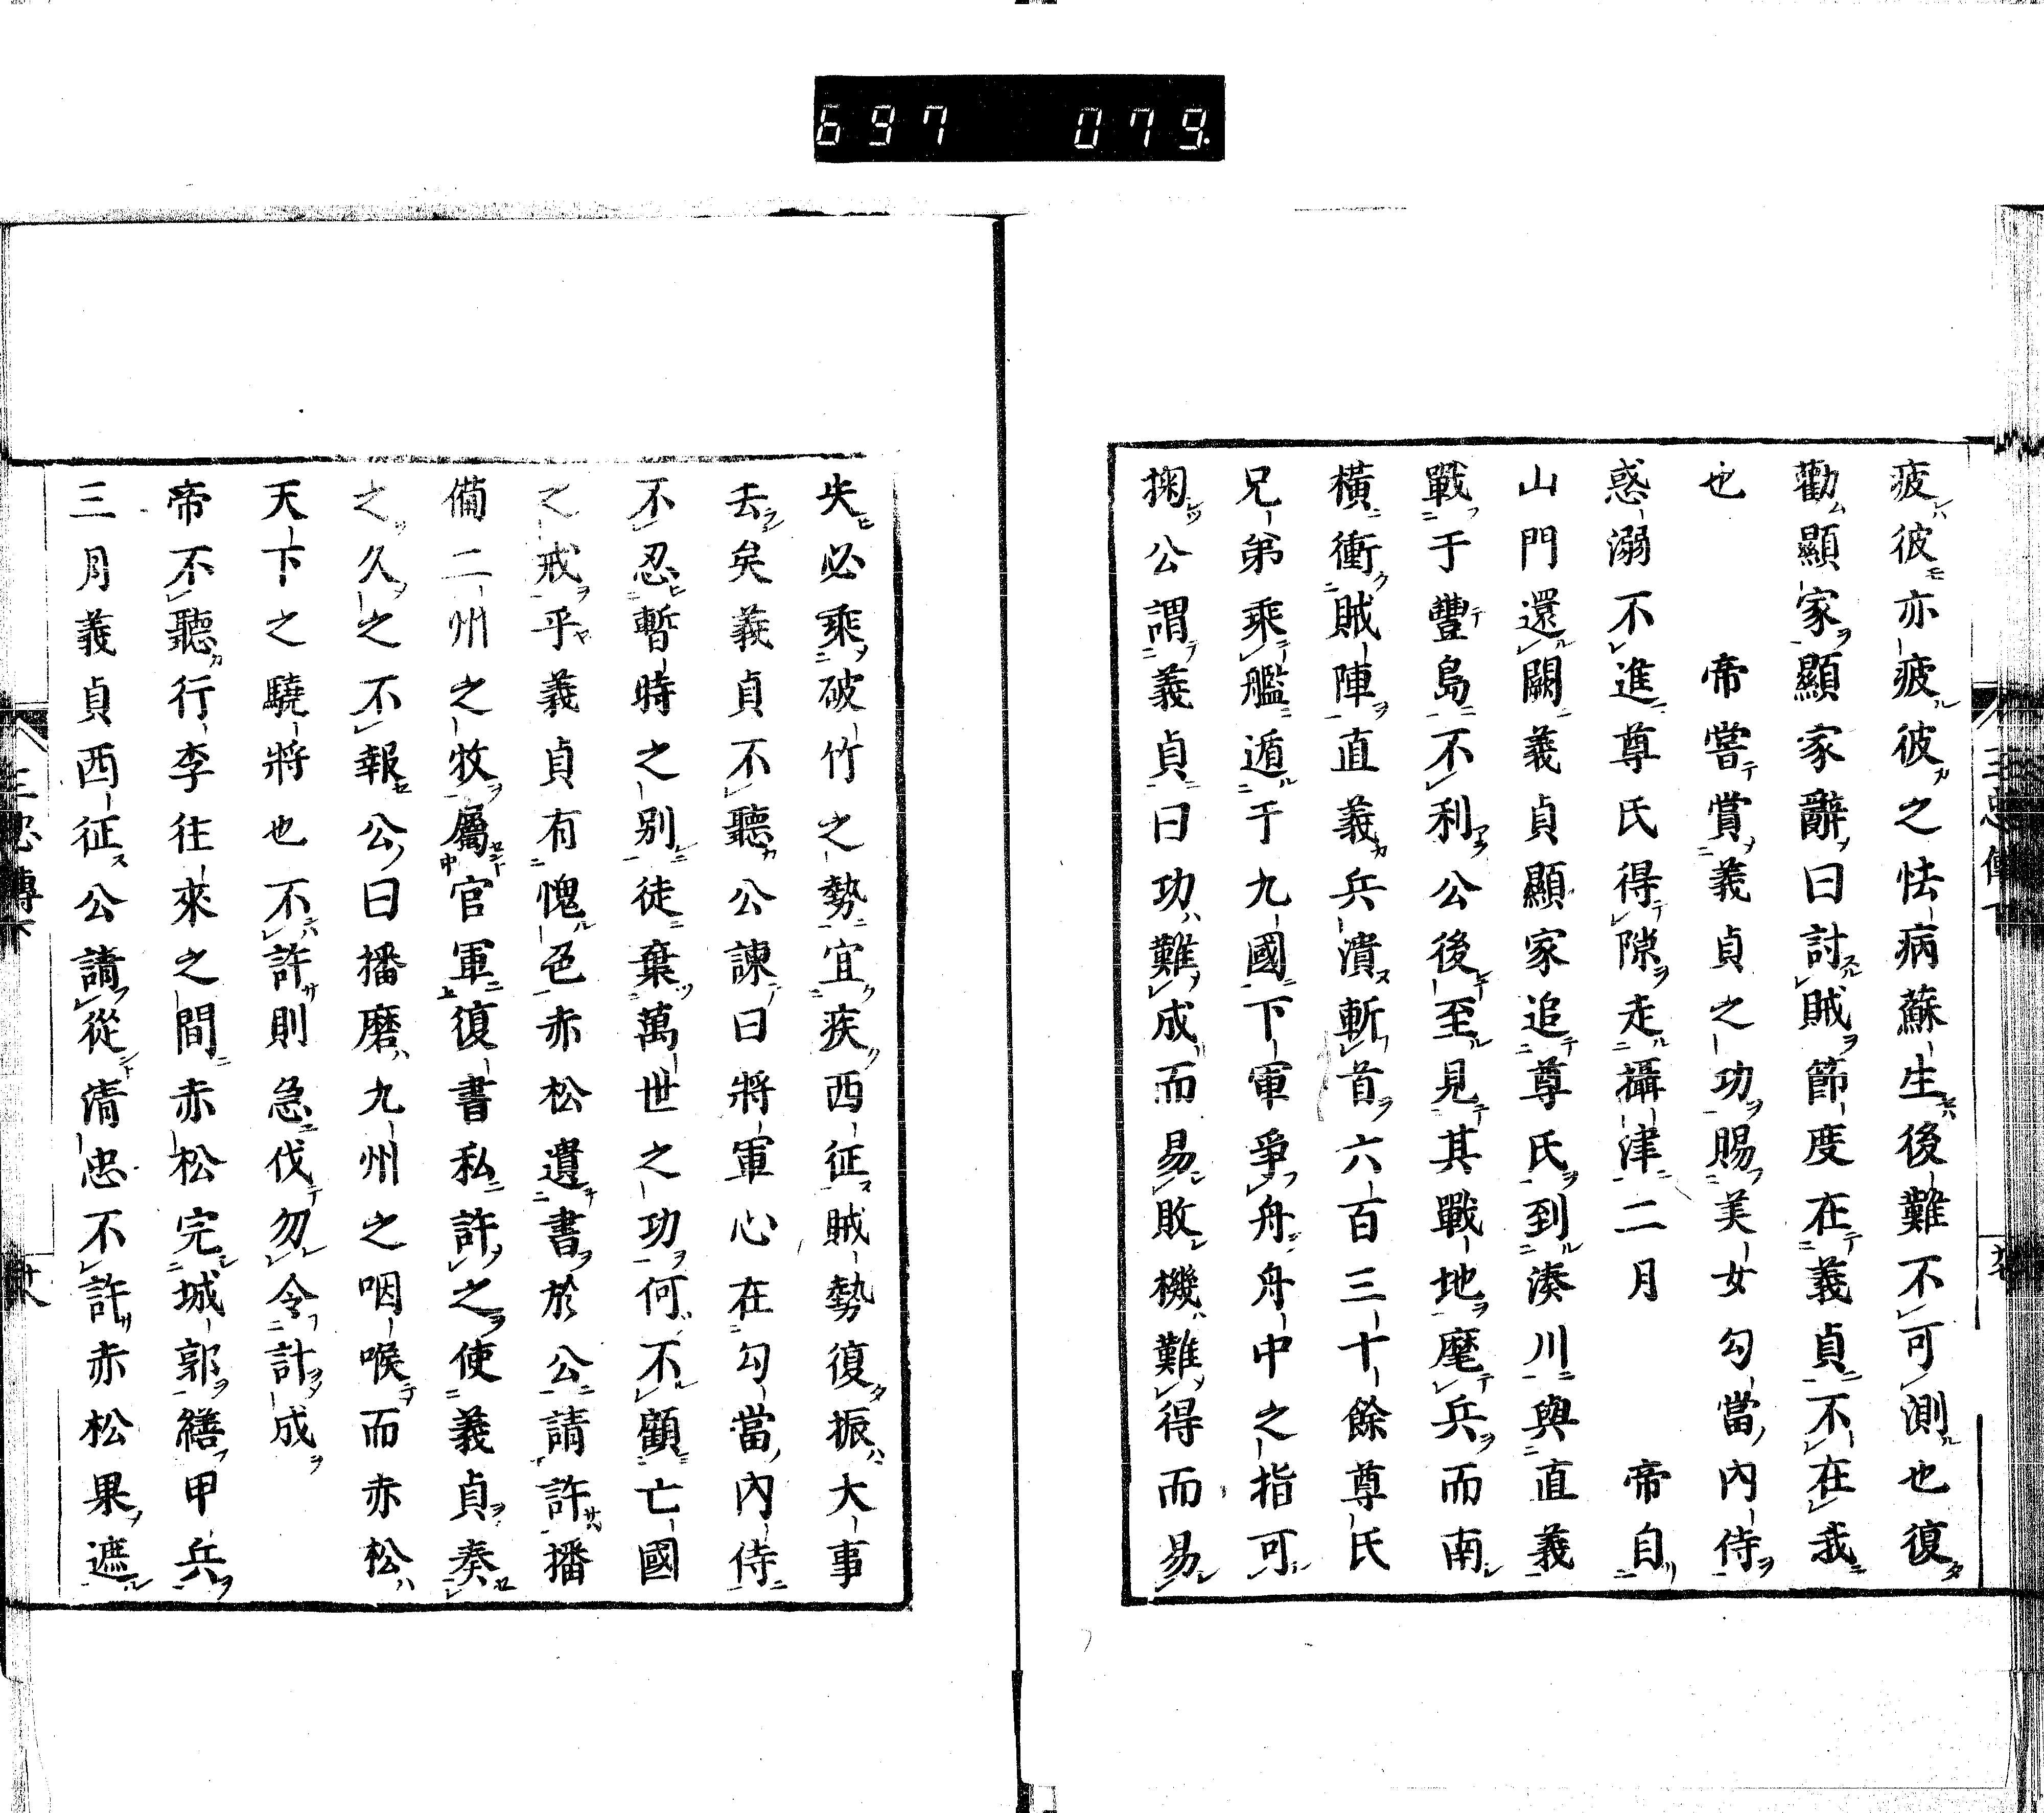 697 079.
疲彼亦疲彼之怯病蘇生後難不可測也復
勸顯家顯家辭曰討賊節度在義貞不在我
也　帝嘗賞義貞之功賜美女勾當內侍
惑溺不進尊氏得隙走攝津二月　帝自
山門還闕義貞顯家追尊氏到湊川與直義
戰于豐島不利公後至見其戰地麾兵而南
橫衝賊陣直義兵潰斬首六百三十餘尊氏
兄弟乘艦遁于九國下軍爭舟舟中之指可
掬公謂義貞曰功難成而易敗機難得而易
失必乘破竹之勢宜疾西征賊勢復振大事
去矣義貞不聽公諫曰將軍心在勾當內侍
不忍暫時之別徒棄萬世之功何不顧亡國
之戒乎義貞有愧色赤松遺書於公請許播
備二州之牧屬官軍復書私許之使義貞奏
之久之不報公曰播磨九州之咽喉而赤松
天下之驍將也不許則急伐勿令計成
帝不聽行李往來之間赤松完城郭繕甲兵
三月義貞西征公請從淸忠不許赤松果遮
三忠傳下